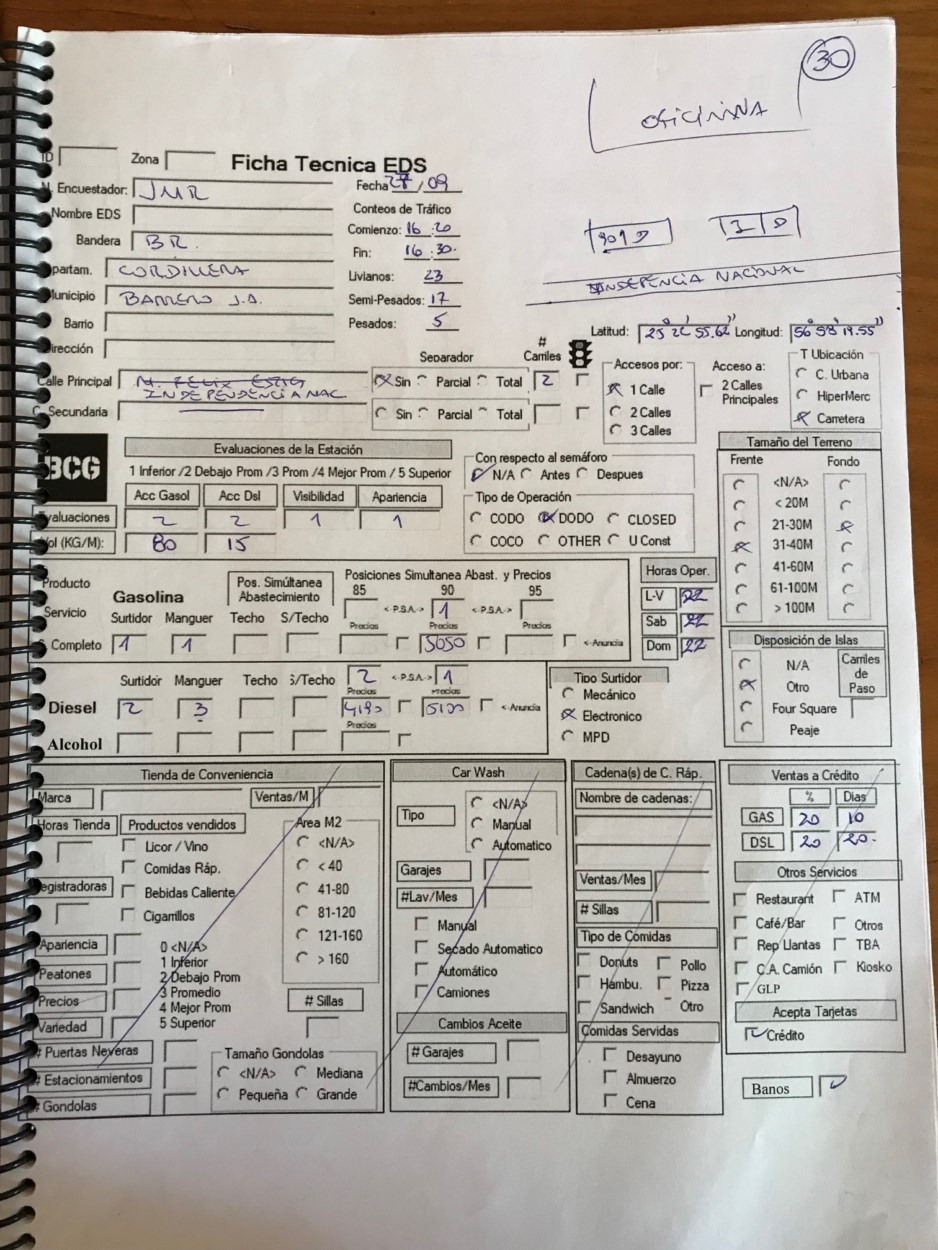 30
OFICINA
ID Zona Ficha Tecnica EDS
Encuestador: JMR Fecha 27/09
Nombre EDS Conteos de Tráfico
Bandera BR. Comienzo: 16:20
Fin: 16:30
partam. CORDILLERA Livianos: 23
unicipio BARRERO J.A. Semi-Pesados: 17
Barrio Pesados: 5
INDEPENCIA NACIONAL
irección Latitud: 25° 22' 55.62" Longitud: 56° 58' 19.55"
Calle Principal INDEPENDENCIA NAC
Separador # Carriles
Sin Parcial Total 2
C. Secundaria
Sin Parcial Total
Accesos por:
1 Calle
2 Calles
3 Calles
Acceso a:
2 Calles Principales
T Ubicación
C. Urbana
HiperMerc
Carretera
BCG
Evaluaciones de la Estación
1 Inferior /2 Debajo Prom /3 Prom /4 Mejor Prom / 5 Superior
Acc Gasol Acc Dsl Visibilidad Apariencia
valuaciones 2 2 1 1
ol (KG/M): 80 15
Con respecto al semáforo
N/A Antes Despues
Tipo de Operación
CODO DODO CLOSED
COCO OTHER U Const
Tamaño del Terreno
Frente Fondo
<N/A>
< 20M
21-30M
31-40M
41-60M
61-100M
> 100M
Producto Gasolina Pos. Simúltanea Abastecimiento Posiciones Simultanea Abast. y Precios
85 90 95
Servicio <-P.S.A.-> 1 <-P.S.A.->
Surtidor Manguer Techo S/Techo Precios Precios Precios
Completo 1 1 5050 <-Anuncia
Horas Oper.
L-V 22
Sab 22
Dom 22
Disposición de Islas
N/A
Otro
Four Square
Peaje
Carriles de Paso
Surtidor Manguer Techo S/Techo 2 <-P.S.A.-> 1
Precios Precios
Diesel 2 3 4190 5100 <-Anuncia
Precios
Alcohol
Tipo Surtidor
Mecánico
Electronico
MPD
Tienda de Conveniencia
Marca Ventas/M
Horas Tienda Productos vendidos
Licor / Vino
Comidas Ráp.
egistradoras Bebidas Caliente
Cigarrillos
Area M2
<N/A>
< 40
41-80
81-120
121-160
> 160
Apariencia 0 <N/A>
1 Inferior
Peatones 2 Debajo Prom
3 Promedio
Precios 4 Mejor Prom
Variedad 5 Superior
# Sillas
# Puertas Neveras
# Estacionamientos
# Gondolas
Tamaño Gondolas
<N/A> Mediana
Pequeña Grande
Car Wash
Tipo
<N/A>
Manual
Automatico
Garajes
#Lav/Mes
Manual
Secado Automatico
Automático
Camiones
Cambios Aceite
# Garajes
#Cambios/Mes
Cadena(s) de C. Ráp.
Nombre de cadenas:
Ventas/Mes
# Sillas
Tipo de Comidas
Donuts Pollo
Hambu. Pizza
Sandwich Otro
Comidas Servidas
Desayuno
Almuerzo
Cena
Ventas a Crédito
% Dias
GAS 20 10
DSL 20 20
Otros Servicios
Restaurant ATM
Café/Bar Otros
Rep Llantas TBA
C.A. Camión Kiosko
GLP
Acepta Tarjetas
Crédito
Banos